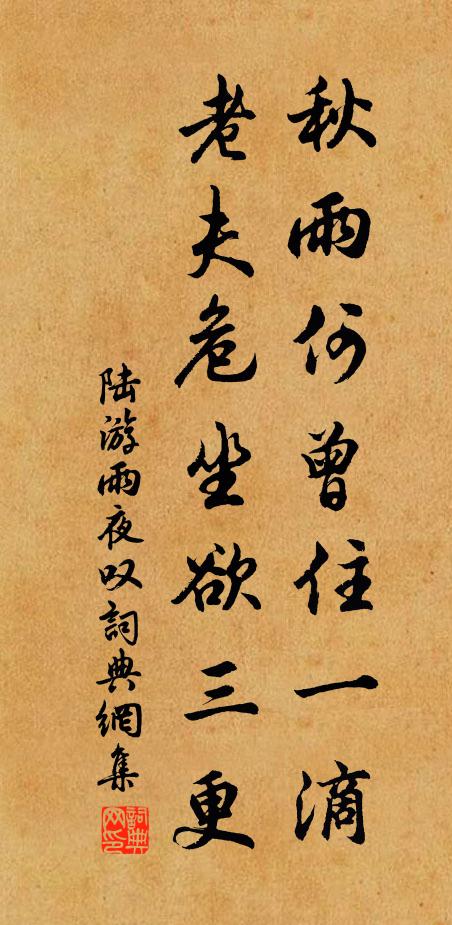 秋雨何曾住一滴
老夫危坐欲三更
陆游雨夜叹詞典網集
詞典
网印